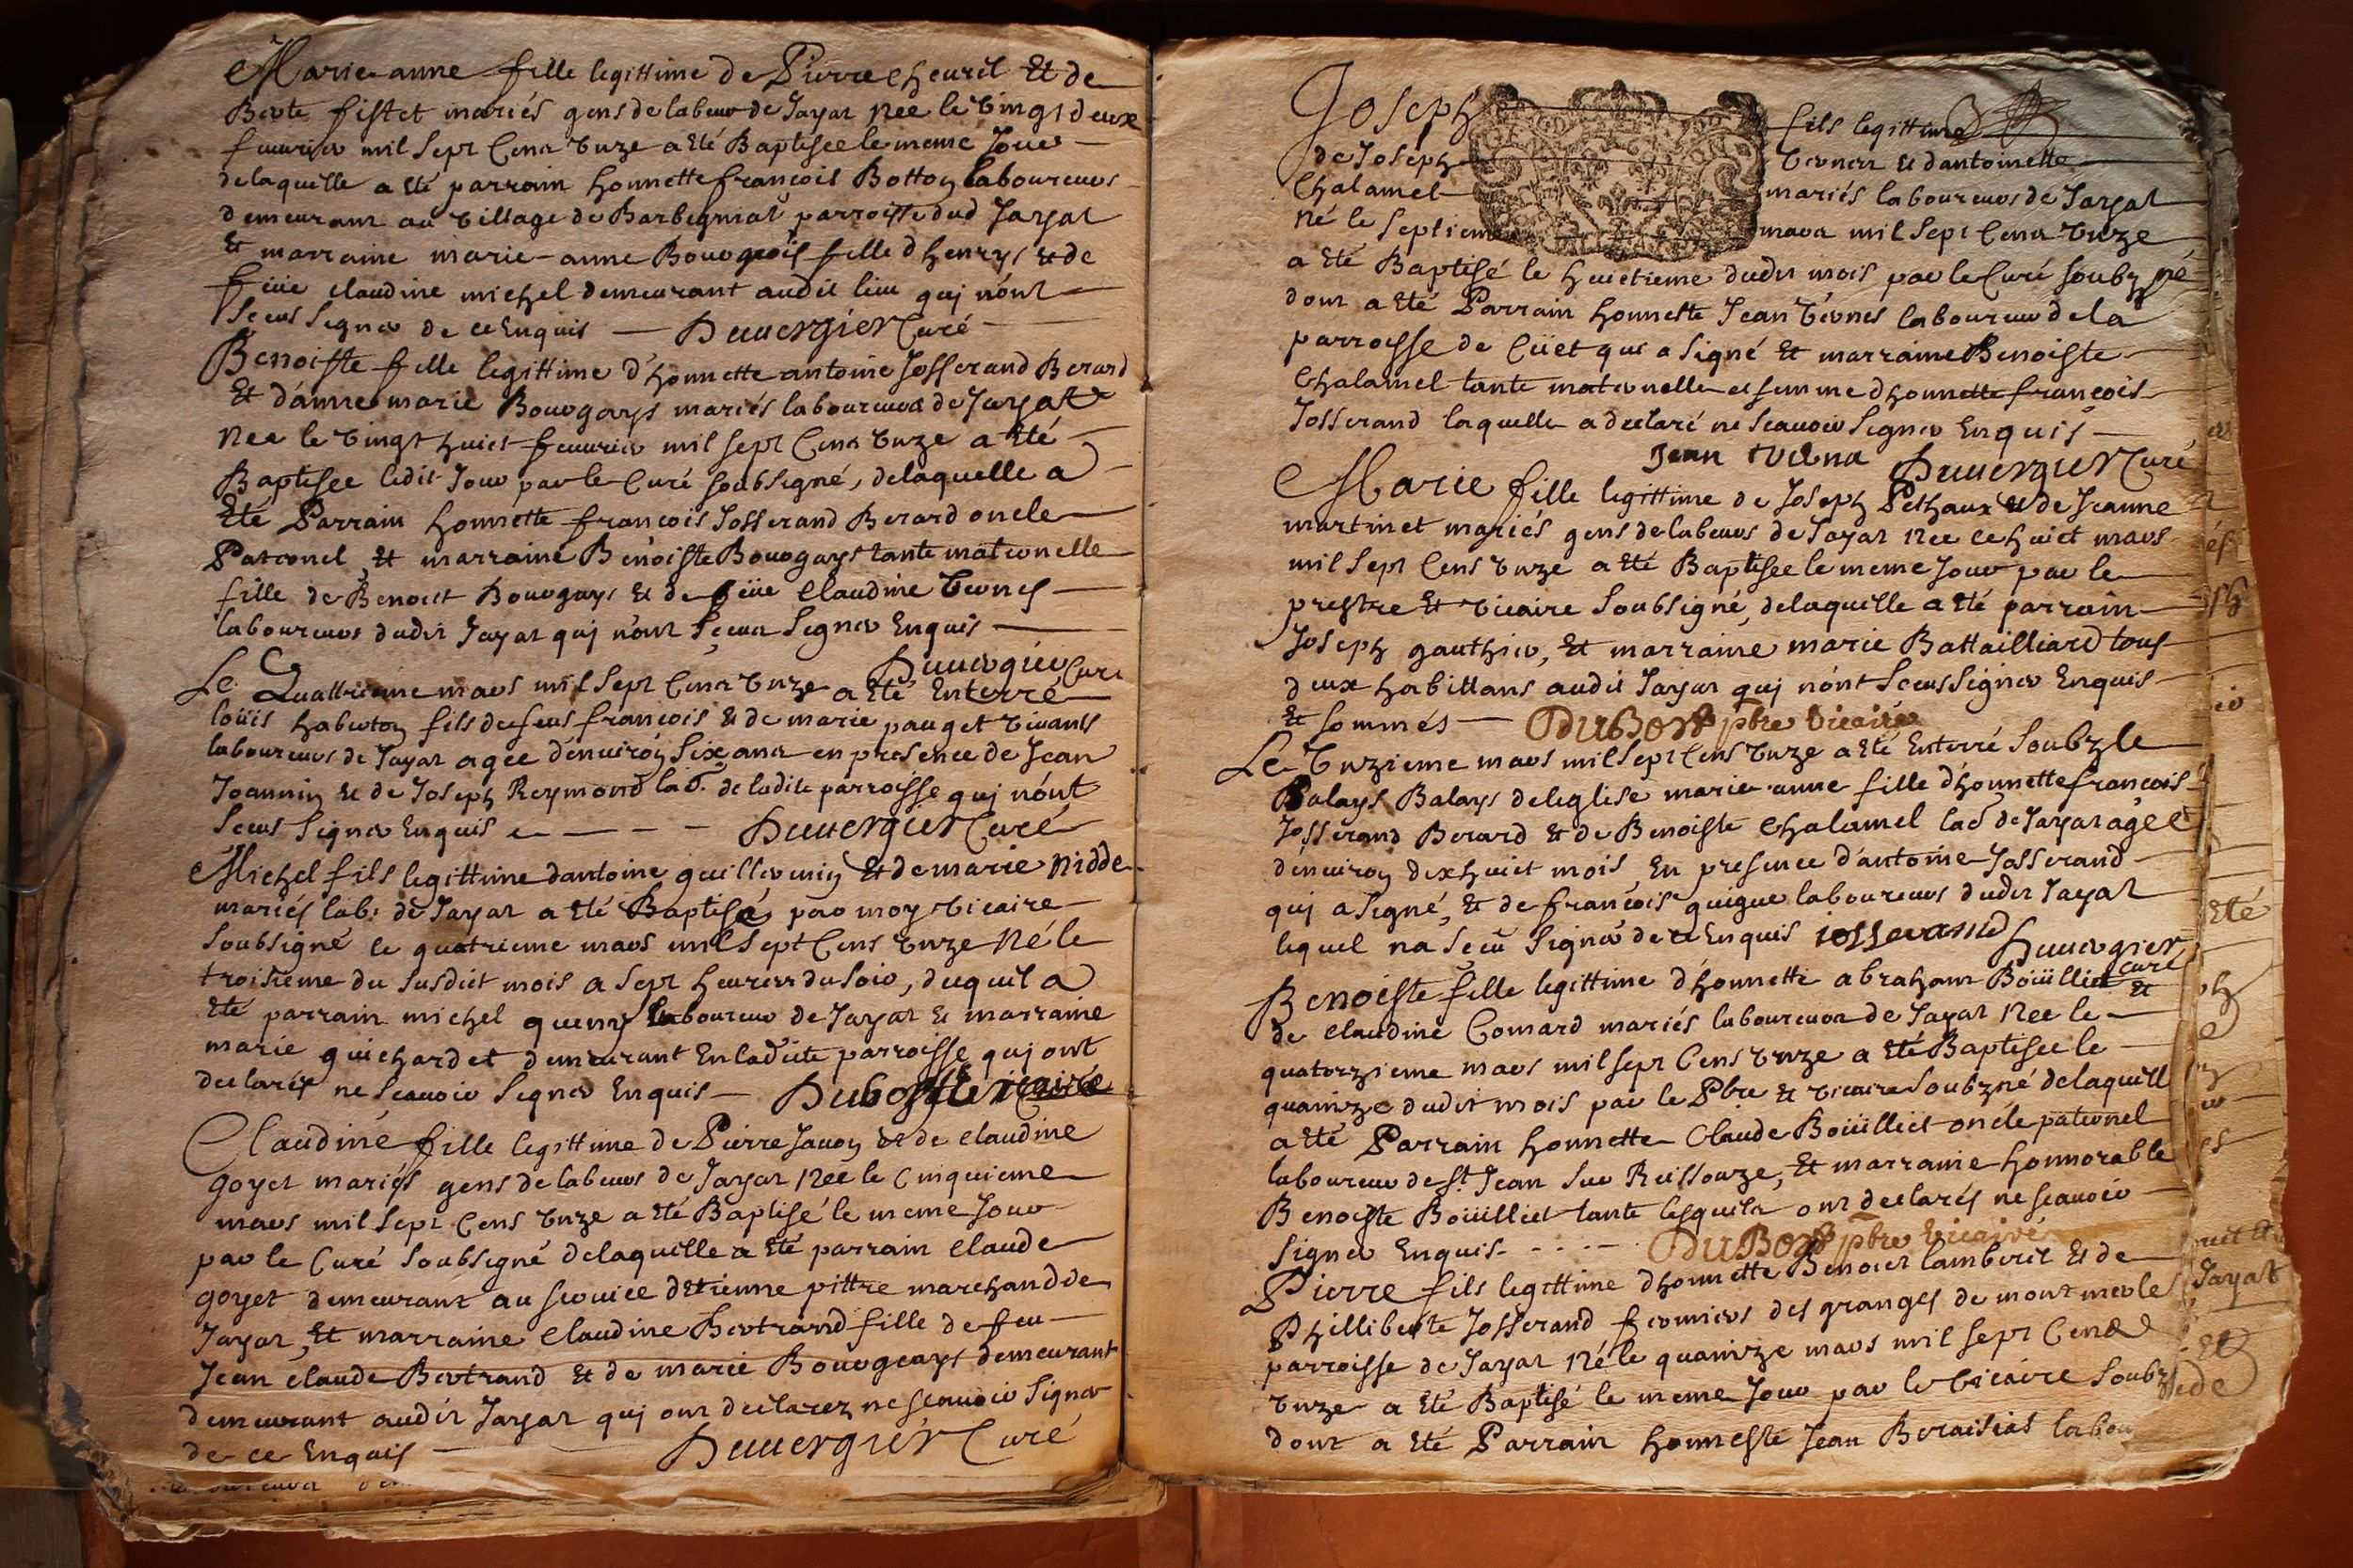 Marie anne fille legittime de Pierre cheuril Et de
Berte fistet mariés gens de labeur de Jayat Nee le vingt deux
feuurier mil sept Cens vnze a Eté Baptisee le meme Jour
de laquelle a Eté parrain honnette francois Botton laboureurs
demeurant au village de Barbegniat parroisse dud Jayat
Et marraine marie-anne Bourgeois fille dhenrys & de
feüe claudine michel demeurant audit lieu quj nont
sceus signer de ce Enquis Duuergier Curé
Benoiste fille legittime d'honnette antoine Josserand Berard
Et d'anne marie Bourgays mariés laboureurs de Jayat
Nee le vingt huict feuurier mil sept Cens vnze a Eté
Baptisee ledit Jour par le Curé soubsigné, delaquelle a
Eté Parrain honnette francois Josserand Berard oncle
Paternel Et marraine Benoiste Bourgays tante maternelle
fille de Benoist Bourgays & de feüe Claudine Vernes
laboureurs dudit Jayat quj nont sceus signer Enquis
Duuergier Curé
Le Quattrieme mars mil sept Cens vnze a Eté Enterré
loüis haberton fils de feus francois & de marie pauget viuants
laboureurs de Jayat agee denuiron six ans en presence de Jean
Joannin & de Joseph Reymond lab. de ladite parroisse quj nont
sceus signer Enquis Duuergier Curé
Michel fils legittime dantoine guilleruin Et de marie Nidde
mariés lab: de Jayat a Eté Baptisé par moy vicaire
soubsigné le quatrieme mars mil sept Cens vnze Né le
troisieme du susdict mois a sept heures du soir, duquel a
Eté parrain michel queny laboureur de Jayat & marraine
marie guichardet demeurant En ladicte parroisse quj ont
declarés ne scauoir signer Enquis Dubost vicaire
Claudine fille legittime de Pierre Jauon & de claudine
goyet mariés gens de labeurs de Jayat Nee le Cinquieme
mars mil sept Cens vnze a Eté Baptisé le meme Jour
par le Curé soubsigné delaquelle a Eté parrain claude
goyet demeurant au seruice detienne pittre marchand de
Jayat, Et marraine claudine Bertrand fille de feu
Jean claude Bertrand & de marie Bourgeays demeurant
demeurant audit Jayat quj ont declarez ne scauoir signer
de ce Enquis Duuergier Curé
Joseph fils legittime
de Joseph Vernes & dantoinette
Chalamel mariés laboureurs de Jayat
né le septieme mars mil sept Cens vnze
a Eté Baptisé le huictieme dudit mois par le Curé soubzné
dont a Eté Parrain honneste Jean Vernes laboureur de la
parroisse de Cüet qui a signé Et marraine Benoiste
Chalamel tante maternelle et femme dhonnette francois
Josserand laquelle a declaré ne scauoir signer Enquis
Jean Verna Duuergier Curé
Marie fille legittime de Joseph Pethaux & de Jeanne
martinet mariés gens de labeurs de Jayat Nee ce huict mars
mil sept Cens vnze a Eté Baptisee le meme Jour par le
prestre Et vicaire soubsigné, delaquelle a Eté parrain
Joseph gauthier, Et marraine marie Battailliard tous
deux habittans audit Jayat quj nont sceus signer Enquis
Et sommés DuBost pbre vicaire
Le vnzieme mars mil sept Cens vnze a Eté Enterré soubz le
Balays Balays deleglise marie anne fille dhonnette francois
Josserand Berard & de Benoiste Chalamel lab de Jayat agee
denuiron dixhuict mois En presence d'antoine Josserand
quj a signé, & de francois guigue laboureurs dudit Jayat
lequel na sceu signer de ce Enquis iosserand Duuergier
curé
Benoiste fille legittime dhonnette abraham Boüilliet &
de claudine Comard mariés laboureurs de Jayat Nee le
quatorzieme mars mil sept Cens vnze a Eté Baptisee le
quainze dudit mois par le Pbre & vicaire soubzné delaquell
a Eté Parrain honnette Claude Boüilliet oncle paternel
laboureur de st. Jean sur Reissouze, Et marraine honnorable
Benoiste Boüilliet tante lesquels ont declarés ne scauoir
signer Enquis DuBost pbre vicaire
Pierre fils legittime dhonnette Benoict lambert & de
Philliberte Josserand fermiers des granges de montmerle
parroisse de Jayat Né le quainze mars mil sept Cens
vnze a Eté Baptisé le meme Jour par le vicaire soubz
dont a Eté Parrain honneste Jean Beraisiat labou
Eté
Jayat
Et
de